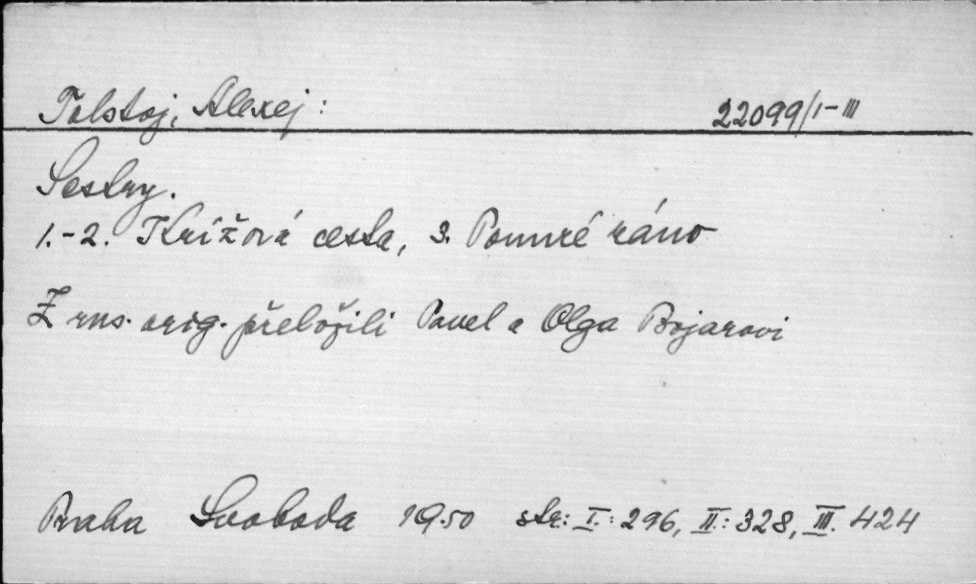 Tolstoj, Alexej: 22099/I-III
Sestry.
1.-2. Křížová cesta, 3. Ponuré ráno
Z rus. orig. přeložili Pavel a Olga Bojarovi
Praha Svoboda 1950 str: I.: 296, II.: 328, III. 424